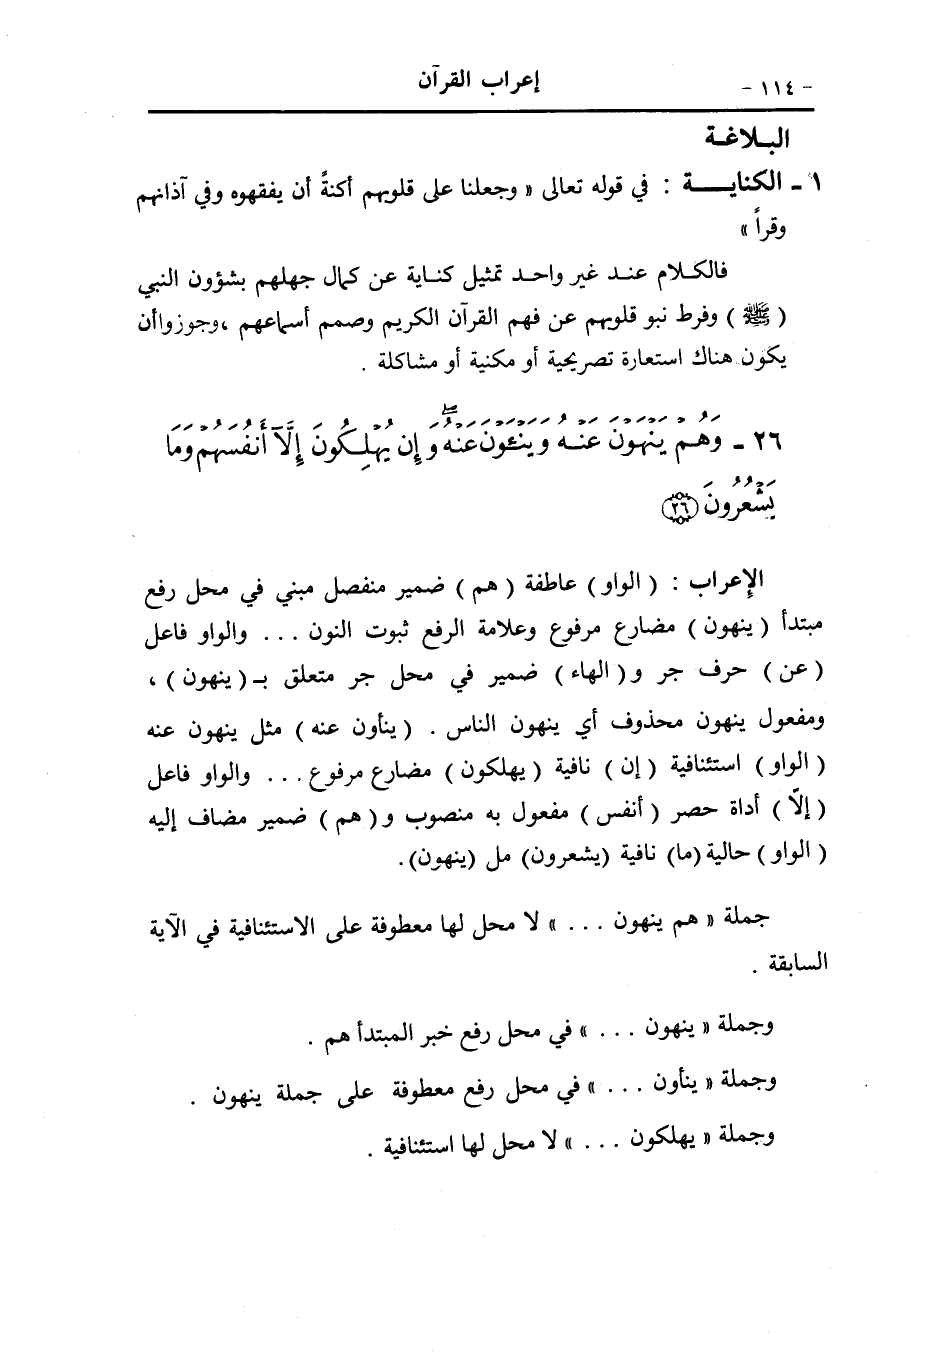 - ١١٤ -
إعراب القرآن
البـلاغـة
١ ـ الكنايـــة : في قوله تعالى « وجعلنا على قلوبهم أكنةً أن يفقهوه وفي آذانهم
وقراً »
فالكـلام عنـد غير واحـد تمثيل كنـاية عن كمال جهلهم بشؤون النبي
( ﷺ ) وفرط نبو قلوبهم عن فهم القرآن الكريم وصمم أسماعهم ،وجوزواأن
يكون هناك استعارة تصريحية أو مكنية أو مشاكلة .
٢٦ ـ وَهُمْ يَنْهَوْنَ عَنْهُ وَيَنْـَٔوْنَ عَنْهُۖ وَإِن يُهْلِكُونَ إِلَّآ أَنفُسَهُمْ وَمَا
يَشْعُرُونَ ﴿٢٦﴾
الإعراب : ( الواو ) عاطفة ( هم ) ضمير منفصل مبني في محل رفع
مبتدأ ( ينهون ) مضارع مرفوع وعلامة الرفع ثبوت النون ... والواو فاعل
( عن ) حرف جر و ( الهاء ) ضمير في محل جر متعلق بـ ( ينهون ) ،
ومفعول ينهون محذوف أي ينهون الناس . ( ينأون عنه ) مثل ينهون عنه
( الواو ) استئنافية ( إن ) نافية ( يهلكون ) مضارع مرفوع ... والواو فاعل
( إلّا ) أداة حصر ( أنفس ) مفعول به منصوب و ( هم ) ضمير مضاف إليه
( الواو ) حالية (ما) نافية (يشعرون) مل (ينهون).
جملة « هم ينهون ... » لا محل لها معطوفة على الاستئنافية في الآية
السابقة .
وجملة « ينهون ... » في محل رفع خبر المبتدأ هم .
وجملة « ينأون ... » في محل رفع معطوفة على جملة ينهون .
وجملة « يهلكون ... » لا محل لها استئنافية .